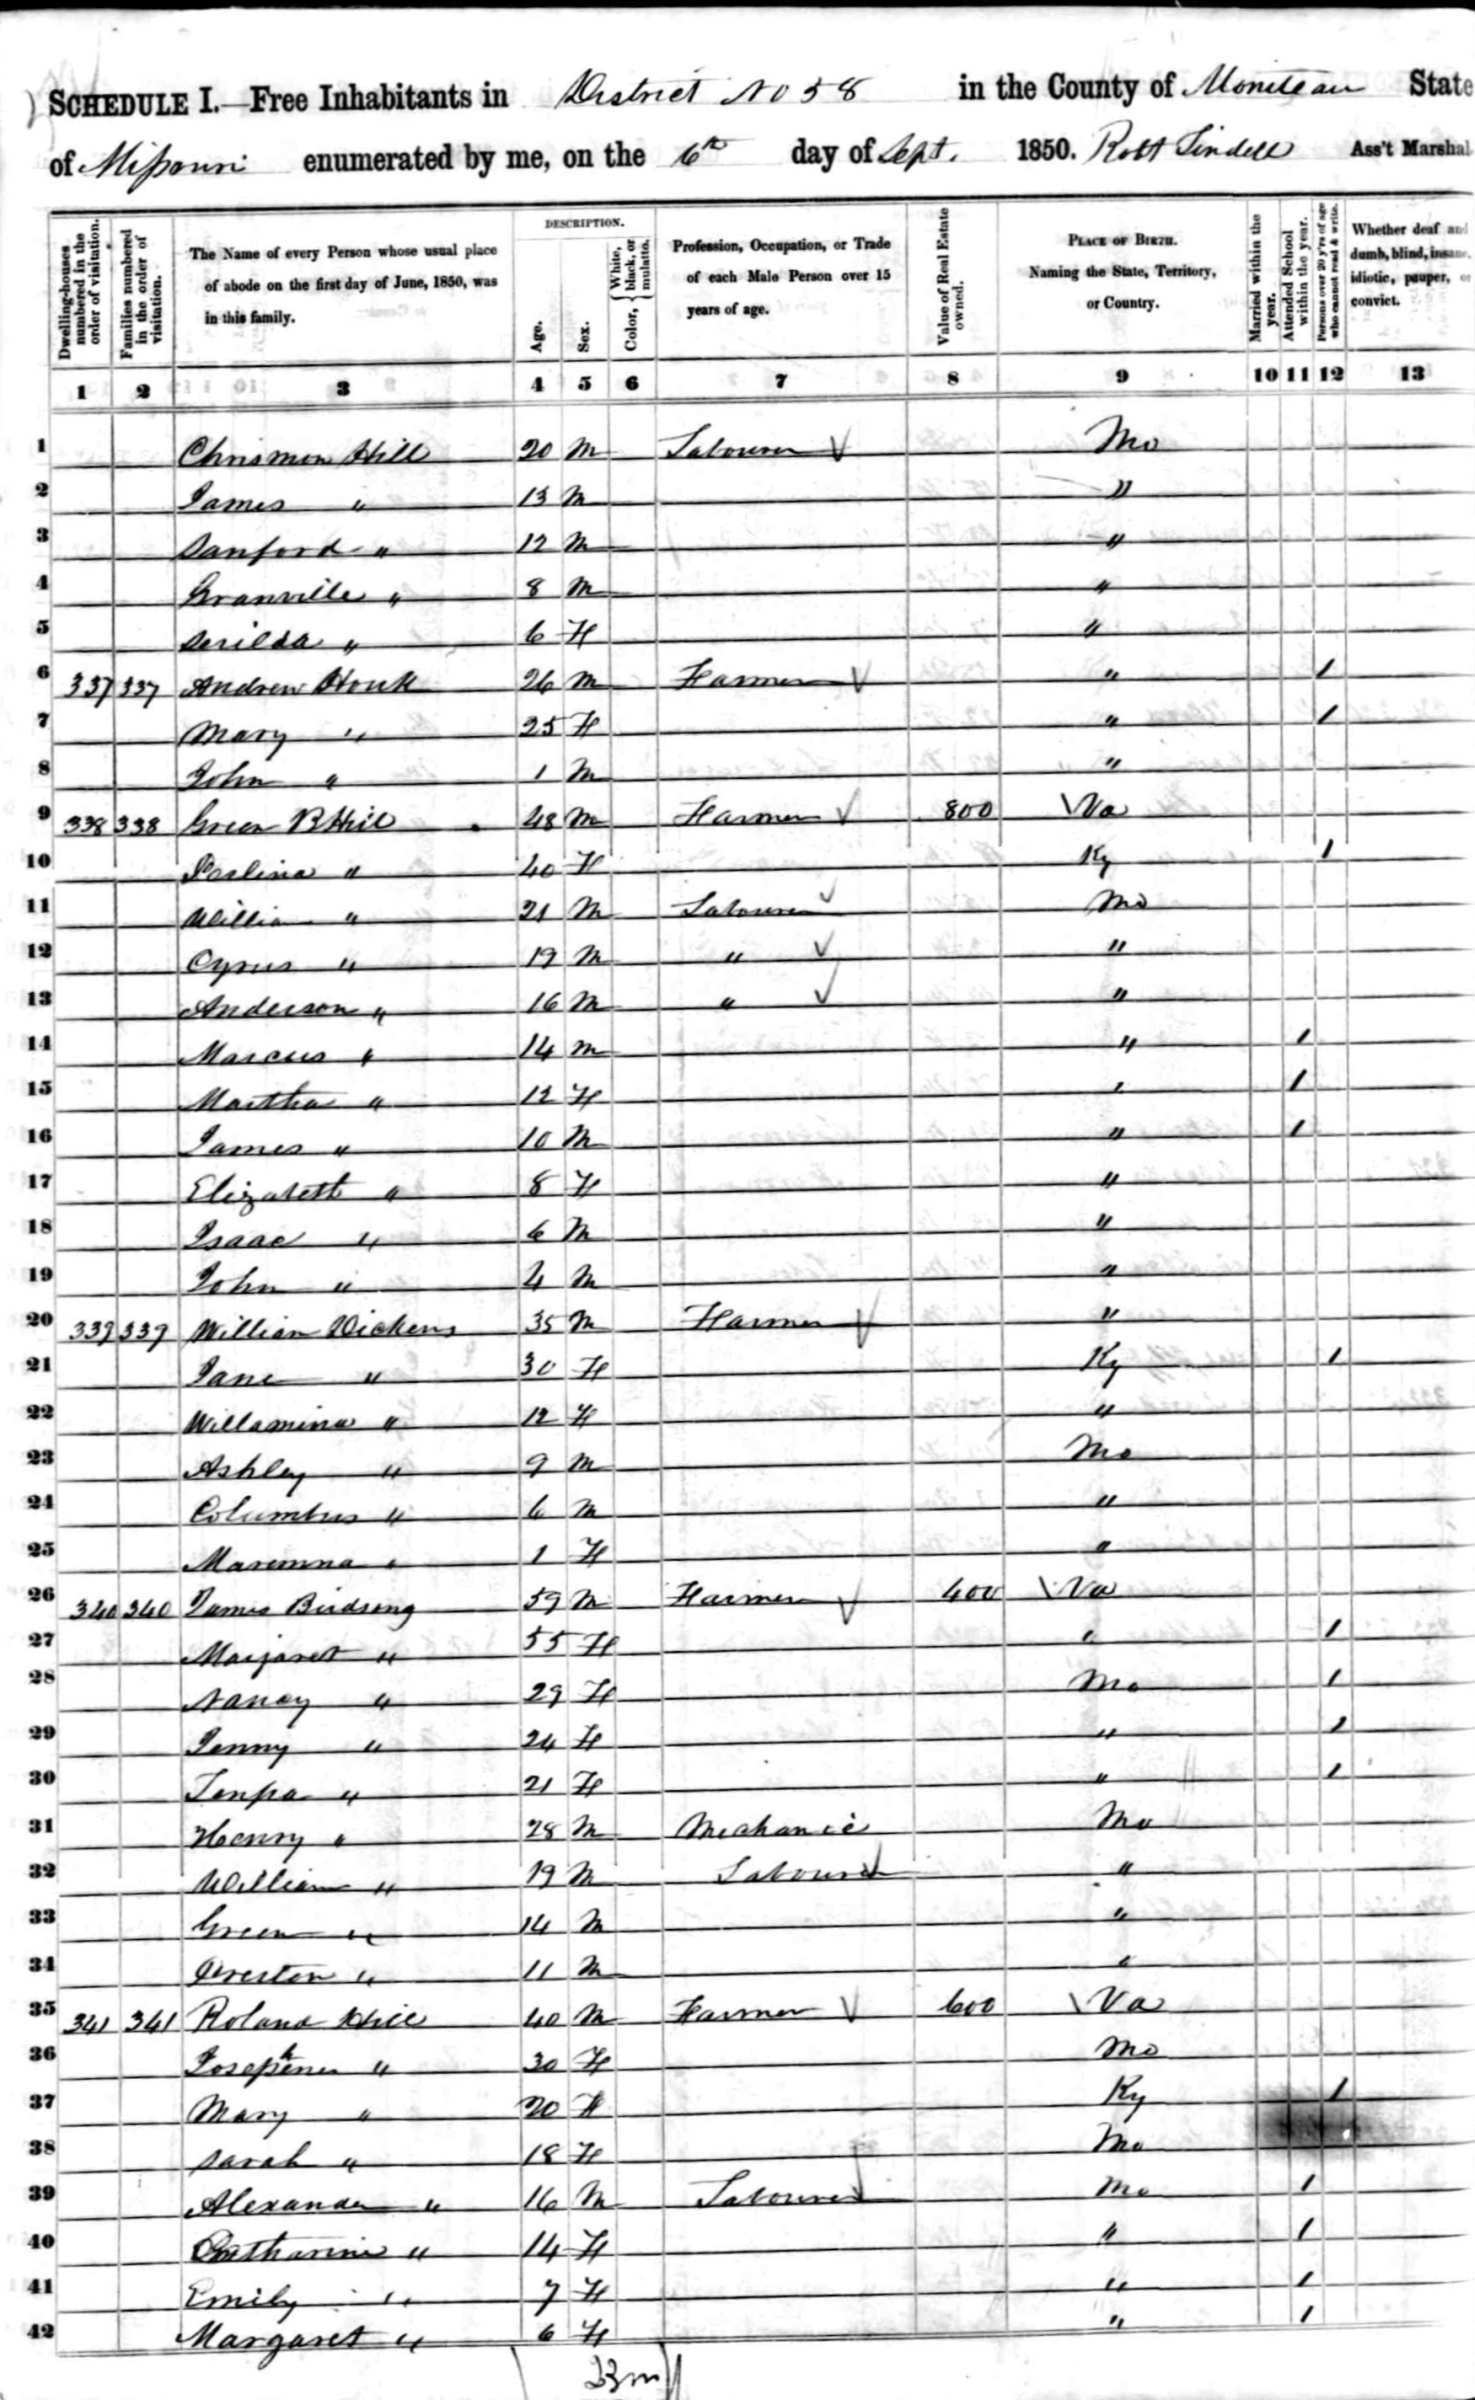 SCHEDULE I.—Free Inhabitants in District No 58 in the County of Moniteau State
of Missouri enumerated by me, on the 6th day of Sept. 1850. Robt Lindell Ass't Marshal
Dwelling-houses numbered in the order of visitation.
Families numbered in the order of visitation.
The Name of every Person whose usual place of abode on the first day of June, 1850, was in this family.
DESCRIPTION.
Age.
Sex.
Color, { White, black, or mulatto.
Profession, Occupation, or Trade of each Male Person over 15 years of age.
Value of Real Estate owned.
PLACE OF BIRTH. Naming the State, Territory, or Country.
Married within the year.
Attended School within the year.
Persons over 20 y'rs of age who cannot read & write.
Whether deaf and dumb, blind, insane, idiotic, pauper, or convict.
1 2 3 4 5 6 7 8 9 10 11 12 13
1 Chrismon Hill 20 M Labourer Mo
2 James " 13 M "
3 Sanford " 12 M "
4 Granville " 8 M "
5 Serilda " 6 F "
6 337 337 Andrew Houk 26 M Farmer " 1
7 Mary " 25 F " 1
8 John " 1 M "
9 338 338 Green B Hill 48 M Farmer 800 Va
10 Perlina " 40 F Ky 1
11 William " 21 M Labourer Mo
12 Cyrus " 19 M " "
13 Anderson " 16 M " "
14 Marcus " 14 M " 1
15 Martha " 12 F " 1
16 James " 10 M " 1
17 Elizabeth " 8 F "
18 Isaac " 6 M "
19 John " 4 M "
20 339 339 William Dickens 35 M Farmer "
21 Jane " 30 F Ky 1
22 Willamina " 12 F "
23 Ashley " 9 M Mo
24 Columbus " 6 M "
25 " 1 F "
26 340 340 James Birdsong 59 M Farmer 400 Va
27 Margaret " 55 F " 1
28 Nancy " 29 F Mo 1
29 Jenny " 24 F " 1
30 Tenpa " 21 F " 1
31 Henry " 28 M Mechanic Mo
32 William " 19 M Labourer "
33 Green " 14 M "
34 Preston " 11 M "
35 341 341 Roland Hill 40 M Farmer 600 Va
36 " 30 F Mo
37 Mary " 20 F Ky 1
38 Sarah " 18 F Mo
39 Alexander " 16 M Labourer Mo 1
40 Catharine " 14 F " 1
41 Emily " 7 F " 1
42 Margaret " 6 F " 1
23 m